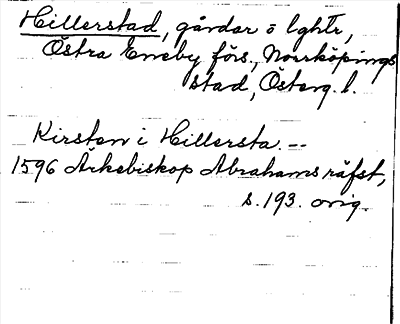 Hillerstad, gårdar o lghtr,
Östra Eneby förs., Norrköpings
stad, Österg. l.
Kirsten i Hillersta. --
1596 Ärkebiskop Abrahams räfst,
s. 193. orig.